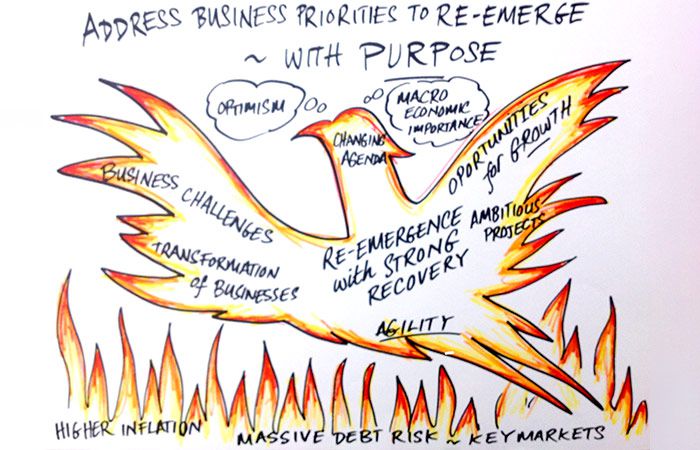 ADDRESS BUSINESS PRIORITIES TO RE-EMERGE
~ WITH PURPOSE
OPTIMISM
MACRO
ECONOMIC
IMPORTANCE
CHANGING
AGENDA
BUSINESS CHALLENGES
TRANSFORMATION
of BUSINESSES
RE-EMERGENCE
with STRONG
RECOVERY
AGILITY
OPORTUNITIES
for GROWTH
AMBITIOUS
PROJECTS
HIGHER INFLATION
MASSIVE DEBT RISK ~ KEY MARKETS